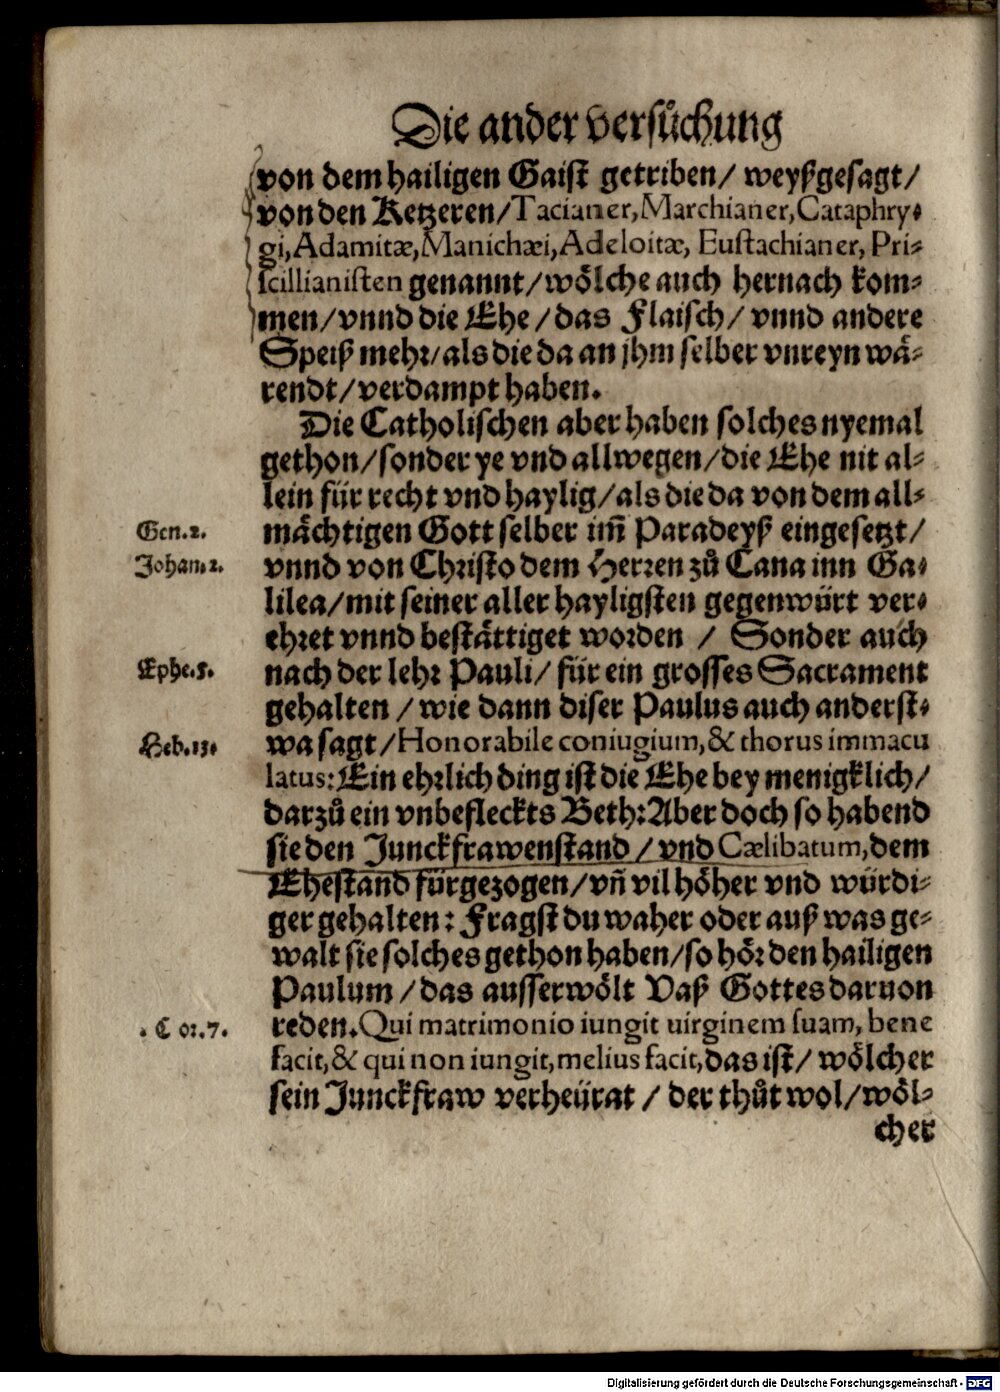 Die ander versuͦchung
von dem hailigen Gaist getriben/ weyßgesagt/
von den Ketzeren/Tacianer, Marchianer, Cataphry-
gi, Adamitæ, Manichæi, Adeloitæ, Eustachianer, Pri-
scillianisten genannt/ woͤlche auch hernach kom-
men/ vnnd die Ehe/ das Flaisch/ vnnd andere
Speiß mehr/ als die da an jhm selber vnreyn waͤ-
rendt/ verdampt haben.
Die Catholischen aber haben solches nyemal
gethon/ sonder ye vnd allwegen/ die Ehe nit al-
lein für recht vnd haylig/ als die da von dem all-
Gen. 2. maͤchtigen Gott selber im̃ Paradeyß eingesetzt/
Johan. 2. vnnd von Christo dem Herren zuͦ Cana inn Ga-
lilea/ mit seiner aller hayligsten gegenwürt ver-
ehret vnnd bestaͤttiget worden / Sonder auch
Ephe. 5. nach der lehr Pauli/ für ein grosses Sacrament
gehalten / wie dann diser Paulus auch anderst-
Heb. 13. wa sagt/ Honorabile coniugium, & thorus immacu
latus: Ein ehrlich ding ist die Ehe bey menigklich/
darzuͦ ein vnbefleckts Beth: Aber doch so habend
sie den Junckfrawenstand / vnd Cælibatum, dem
Ehestand fürgezogen/ vñ vil hoͤher vnd würdi-
ger gehalten: Fragst du waher oder auß was ge-
walt sie solches gethon haben/ so hoͤr den hailigen
Paulum / das ausserwoͤlt Vaß Gottes daruon
. Cor. 7. reden. Qui matrimonio iungit uirginem suam, bene
facit, & qui non iungit, melius facit, das ist/ woͤlcher
sein Junckfraw verheürat / der thuͦt wol/ woͤl-
cher
Digitalisierung gefördert durch die Deutsche Forschungsgemeinschaft - DFG